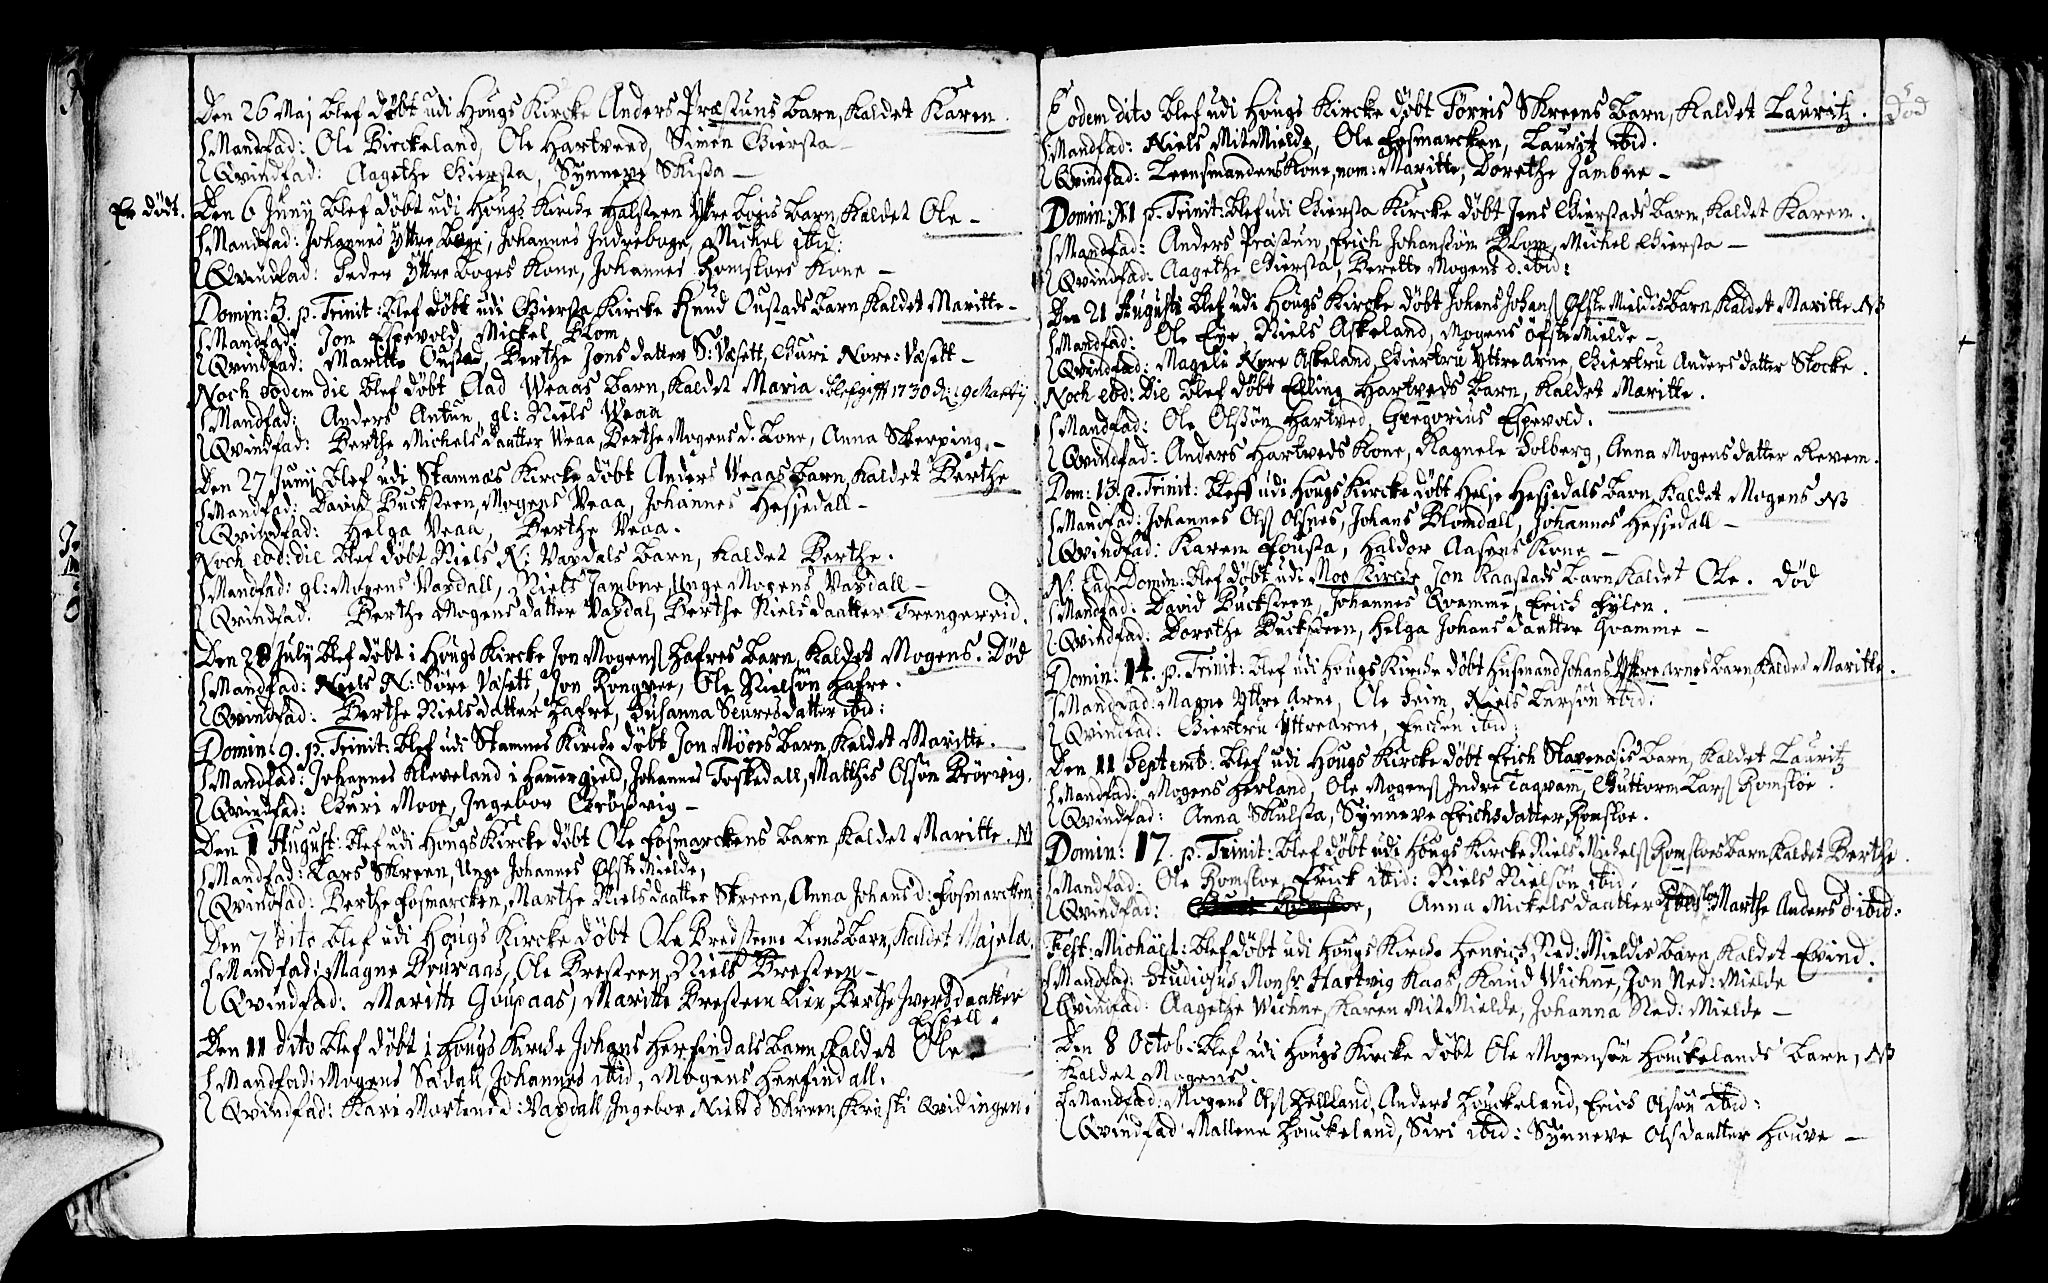 Den 26 Maj blef døbt udi Hougs Kircke Anders Præstuns barn, kaldet Karen.
Mandfad: Ole Birckeland, Ole Hartveed, Simen Giersta —
Qvindfad: Aagethe Giersta, Synneve Skista —
Er dødt.
Den 6 Junij blef døbt udi Hougs Kircke Halsteen Yttre bogis barn, kaldet Ole —
Mandfad: Johannes Yttre boge, Johannes Indreboge, Michel ibid:
Qvindfad: Peder Yttre boges Kone, Johannes Romsloes Kone —
Domin: 3. p. Trinit: blef døbt udi Giersta Kircke Knud Oustads barn, kaldet Maritte —
Mandfad: Jon Espevold, Mickel Blom
Qvindfad: Maritte Oustad, Berthe Jonsdatter S: Væsett, Guri Nore: Væsett —
Noch eodem die blef døbt Elad Weaas barn, kaldet Maria.
Mandfad: Anders Antun, gl: Niels Weaa
Qvindfad: Berthe Michelsdaatter Weaa, Berthe Mogens d. Lone, Anna Skerping. —
Den 27 Junij blef udi Stamnæs Kircke døbt Anders Veaas barn, kaldet Berthe
Mandfad: David Bucksteen, Mogens Veaa, Johannes Hesjedall —
Qvindfad: Helga Veaa, Berthe Veaa.
Noch eod: die blef døbt Niels N: Vaxdals barn, kaldet Berthe.
Mandfad: gl: Mogens Vaxdall, Niels Jambne, Unge Mogens Vaxdall —
Qvindfad. Berthe Mogens datter Vaxdal, Berthe Niels daatter Trengereid.
Den 28 July blef døbt i Hougs Kircke Jon Mogens Hafres barn, kaldet Mogens. Død
Mandfad: Niels N: Søre Væsett, Jon Rongvee, Ole Nielsøn Hafre.
Qvindfad: Berthe Nielsdatter Hafre, Susanna Seuresdatter ibid:
Domin: 9. p. Trinit: blef udi Stamnes Kircke døbt Jon Møoes barn, kaldet Maritte. —
Mandfad: Johannes Kleveland i Hammergield, Johannes Toskedall, Matthis Olsøn Brørvig.
Qvindfad: Guri Mooe, Ingebor Brørvig —
Den 1 August: blef udi Hougs Kircke døbt Ole Fosmarckens barn, kaldet Maritte. NB
Mandfad: Lars Skreen, Unge Johannes Øfste Mielde,
Qvindfad: Berthe Fosmarcken, Marthe Nielsdaatter Skreen, Anna Johans d: Fosmarcken.
Den 7 dito blef udi Hougs Kircke døbt Ole Bredsteens Liens barn, kaldet Majela.
Mandfad: Magne Bruraas, Ole Bresteen, Niels Bresteen —
Qvindfad: Maritte Goupaas, Maritte Bresteen Lien, Berthe Iversdaatter
Espell.
Den 11 dito blef døbt i Hougs Kircke Johans Herfindals barn, kaldet Ole
Mandfad: Mogens Sædall, Johannes ibid, Mogens Herfindall.
Qvindfad: Kari Mortens d: Vaxdall, Ingebor Niels d Skreen, Kristi Qvidingen.
Eodem dito blef udi Hougs Kircke døbt Tørris Skreens barn, kaldet Lauritz. Død
Mandfad: Niels Mit Mielde, Ole Fosmarcken, Lauritz ibid.
Qvindfad: Leensmandens Kone, nom: Maritte, Dorethe Jambne —
Domin: XI p. Trinit: blef udi Giersta Kircke døbt Jens Gierstads barn, kaldet Karen.
Mandfad: Anders Præstun, Erich Johansøn Blom, Michel Giersta —
Qvindfad: Aagethe Giersta, Berette Mogens d. ibid:
Den 21 Augusti blef udi Hougs Kircke døbt Johans Johans Øfste Mieldis barn, kaldet Maritte. NB
Mandfad: Ole Eye, Niels Askeland, Mogens Øfste Mielde —
Qvindfad: Mageli Nore Askeland, Giertru Yttre Arne, Giertru Anders datter Stocke.
Noch eod: die blef døbt Elling Hartveds barn, kaldet Maritte.
Mandfad: Ole Olssøn Hartved, Gregorius Espevold.
Qvindfad: Anders Hartveds Kone, Ragnele Solberg, Anna Mogensdatter Revem.
Dom: 13. p. Trinit: blef udi Hougs Kircke døbt Helje Hesjedals barn, kaldet Mogens NB
Mandfad: Johannes Ols Olsnes, Johans Blomdall, Johannes Hesjedall —
Qvindfad: Karen Fousta, Haldor Aasens Kone —
N: Ead Domin: blef døbt udi Moo Kircke Jon Kaastads barn kaldet Ole. død
Mandfad: David Bucksteen, Johannes Qvamme, Erich Eylen.
Qvindfad: Dorethe Bucksteen, Helga Johans daatter Qvamme —
Domin: 14. p. Trinit: blef udi Hougs Kircke døbt Husmand Johans Yttre arnes barn, kaldet Maritte.
Mandfad: Magne Yttre Arne, Ole Seim, Niels Larsøn ibid:
Qvindfad: Giertru Yttrearne, Encken ibid:
Den 11 Septemb: blef udi Hougs Kircke døbt Erich Skavenæsis barn, kaldet Lauritz
Mandfad: Mogens Herland, Ole Mogens Indre Taqvam, Guttorm Lars Romsloe.
Qvindfad: Anna Skulsta, Synneve Erichsdatter Romsloe.
Domin: 17. p. Trinit: blef døbt udi Hougs Kircke Niels Michels Romsloes barn, kaldet Berthe.
Mandfad: Ole Romsloe, Erick ibid: Niels Nielsøn ibid:
Qvindfad: Anna Mickelsdaatter Marthe Anders d: ibid:
Fest: Michäel: blef døbt udi Hougs Kircke Henrich Ned: Mieldis barn, kaldet Evind.
Mandfad: Studiosus Monsr. Hartvig Kaas, Knud Wichne, Jon Ned: Mielde
Qvindfad: Aagethe Wichne, Karen Mit Mielde, Johanna Ned: Mielde —
Den 8 Octob: blef udi Hougs Kircke døbt Ole Mogensøn Houckelands barn, NB
kaldet Mogens.
Mandfad: Mogens Ols Helland, Anders Houckeland, Erics Olsøn ibid:
Qvindfad: Mallene Houckeland, Siri ibid: Synneve Olsdaatter Houve —